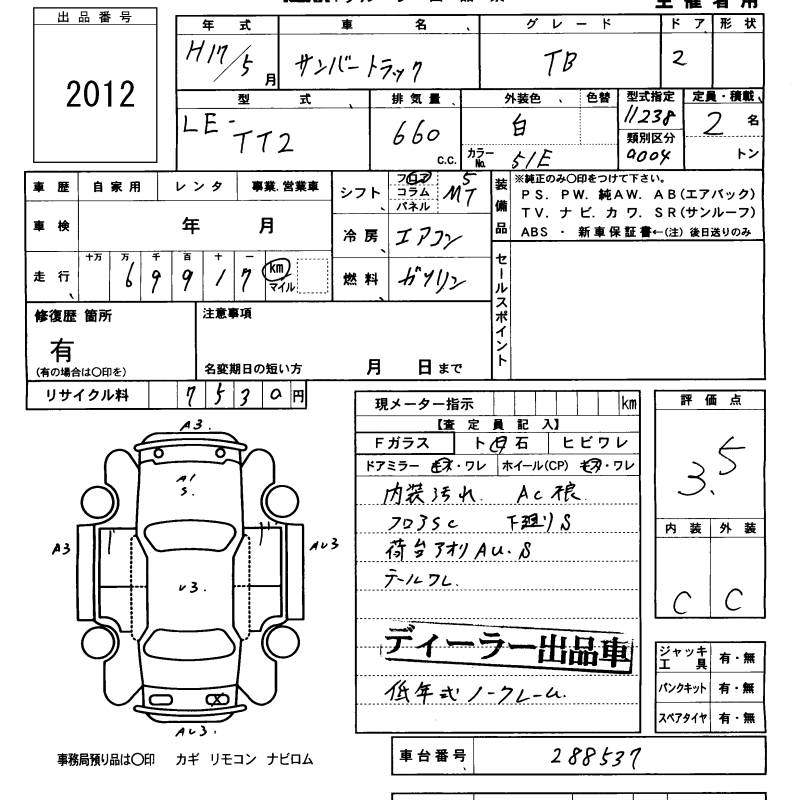 出品番号
2012
年式 車名 グレード ドア 形状
H17/5月 サンバートラック TB 2
型式 排気量 外装色 色替 型式指定 定員・積載
LE-TT2 660 c.c. 白 11238 2 名
カラーNo. 51E 類別区分 0004 トン
車歴 自家用 レンタ 事業.営業車
車検 年 月
走行 十万 万 千 百 十 一
69917 km マイル
シフト フロア コラム パネル 5 MT
冷房 エアコン
燃料 ガソリン
装備品
※純正のみ〇印をつけて下さい。
PS. PW. 純AW. AB(エアバック)
TV. ナビ. カワ. SR(サンルーフ)
ABS ・ 新車保証書←(注) 後日送りのみ
セールスポイント
修復歴 箇所
有
(有の場合は〇印を)
注意事項
名変期日の短い方 月 日まで
リサイクル料 7530円
現メーター指示 km
【査定員記入】
Fガラス ト 石 ヒビワレ
ドアミラー キズ・ワレ ホイール(CP) キズ・ワレ
内装汚れ. AC根.
フロアSC 下廻りS
荷台アオリAU.S
テールワレ.
ディーラー出品車
低年式ノークレーム.
評価点
3.5
内装 外装
C C
ジャッキ工具 有・無
パンクキット 有・無
スペアタイヤ 有・無
車台番号 288537
A3.
A1
S.
A3
AU3
U3.
X
AU3.
事務局預り品は〇印 カギ リモコン ナビロム